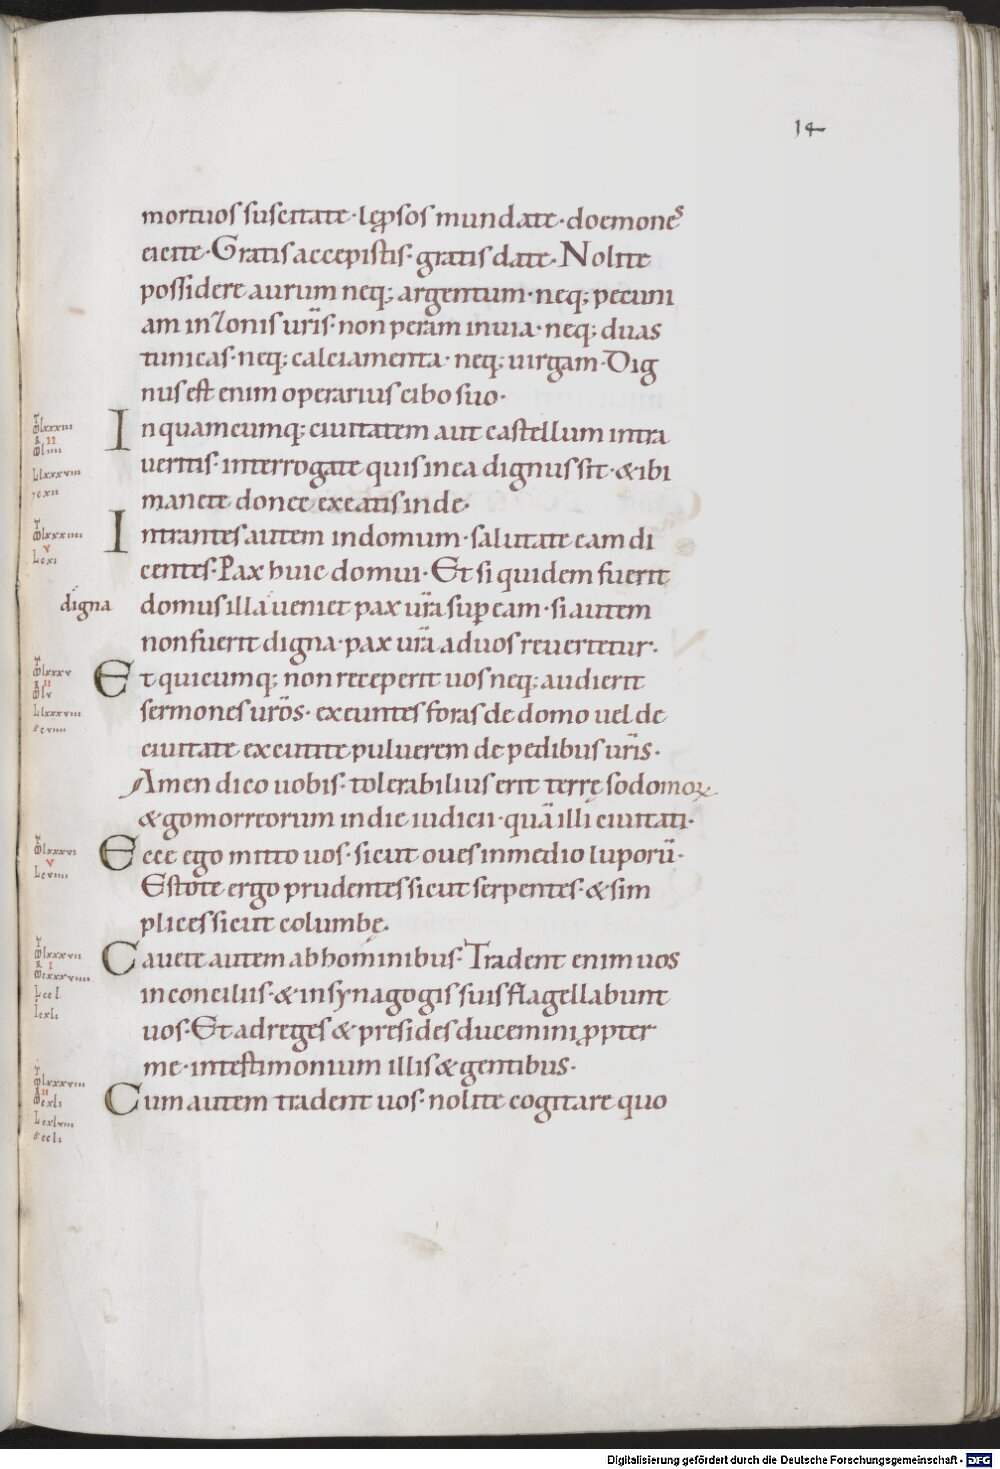 14
mortuos suscitate · leꝓsos mundate · doemones
eicite · Gratis accepistis · gratis date · Nolite
possidere aurum neq; argentum · neq; pecuni
am in zonis uris̄ · non peram in uia · neq; duas
tunicas · neq; calciamenta · neq; uirgam · Dig
nus est enim operarius cibo suo ·
In quamcumq; ciuitatem aut castellum intra
ueritis · interrogate quis in ea dignus sit · & ibi
manete donec exeatis inde ·
Intrantes autem in domum · salutate eam di
centes · Pax huic domui · Et si quidem fuerit
digna
domus illa ueniet pax ur̄a suꝑ eam · si autem
non fuerit digna · pax ur̄a ad uos reuertetur ·
Et quicumq; non receperit uos neq; audierit
sermones ur̄os · exeuntes foras de domo uel de
ciuitate excutite puluerem de pedibus ur̄is ·
Amen dico uobis · tolerabilius erit terrę sodomoꝝ
& gomorreorum in die iudicii · quā illi ciuitati ·
Ecce ego mitto uos · sicut oues in medio luporū ·
Estote ergo prudentes sicut serpentes · & sim
plices sicut columbę ·
Cauete autem ab hominibus · Tradent enim uos
in conciliis · & in synagogis suis flagellabunt
uos · Et ad reges & presides ducemini ꝓpter
me · in testimonium illis & gentibus ·
Cum autem tradent uos · nolite cogitare quo
Digitalisierung gefördert durch die Deutsche Forschungsgemeinschaft - DFG